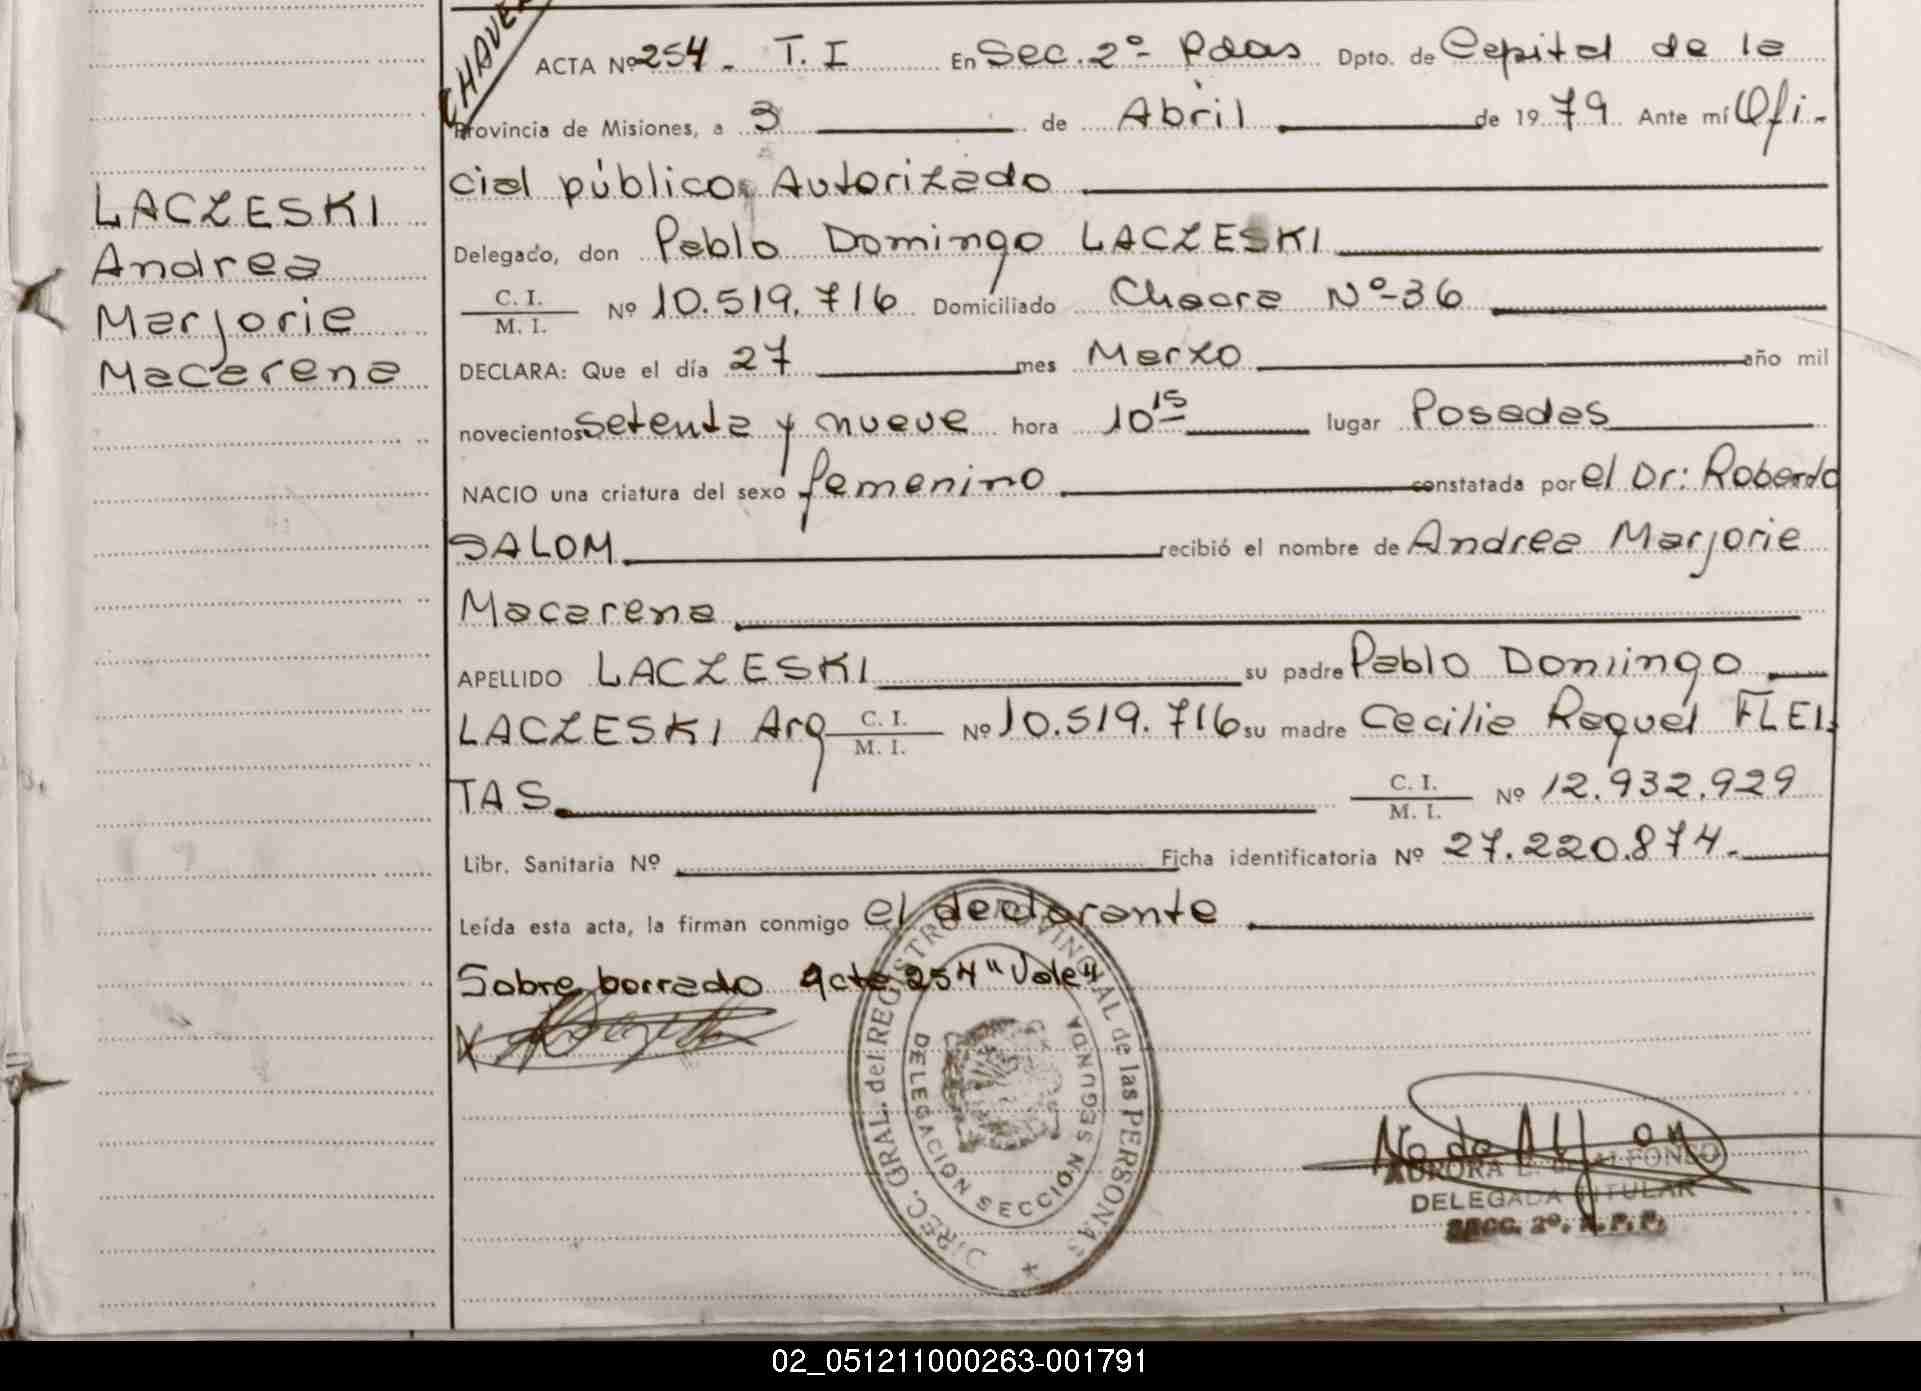 CHAVE
ACTA Nº 254 - T. I En Sec. 2º Pdas Dpto. de Capital de la
Provincia de Misiones, a 3 de Abril de 1979 Ante mí Ofi-
cial público Autorizado
LACZESKI
Andrea
Marjorie
Macarena
Delegado, don Pablo Domingo LACZESKI
C. I.
M. I. Nº 10.519.716 Domiciliado Chacra Nº 36
DECLARA: Que el día 27 mes Marzo año mil
novecientos setenta y nueve hora 10 15 lugar Posadas
NACIO una criatura del sexo femenino constatada por el Dr: Roberto
SALOM recibió el nombre de Andrea Marjorie
Macarena
APELLIDO LACZESKI su padre Pablo Domingo
LACZESKI Arg C. I. M. I. Nº 10.519.716 su madre Cecilia Raquel FLEI-
TAS C. I. M. I. Nº 12.932.929
Libr. Sanitaria Nº Ficha identificatoria Nº 27.220.874.-
Leída esta acta, la firman conmigo el declarante
Sobre borrado Acta 254 "Vale"
DIREC. GRAL. del REGISTRO PROVINCIAL de las PERSONAS
DELEGACION SECCION SEGUNDA
AURORA ALFONSO
DELEGADA TITULAR
SECC. 2º. R. P. P.
02_051211000263-001791